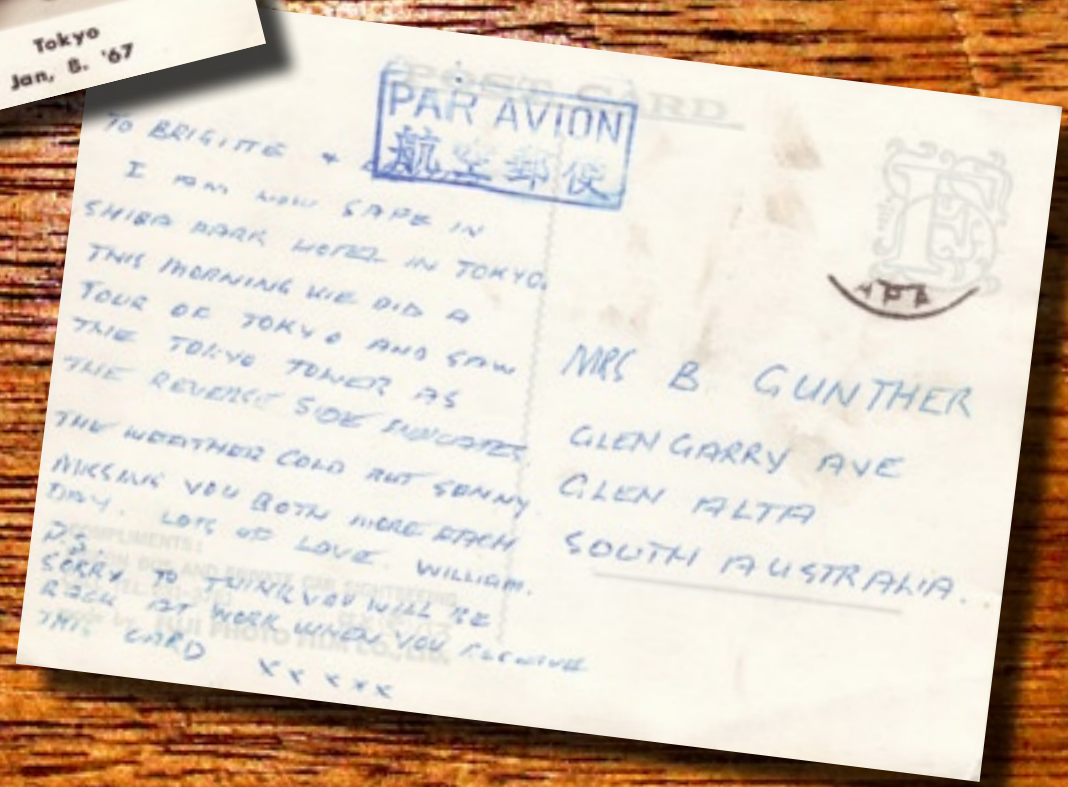 Tokyo
Jan, 8. '67
POST CARD
PAR AVION
航空郵便
TO BRIGITTE +
I AM NOW SAFE IN
SHIBA PARK HOTEL IN TOKYO.
THIS MORNING WE DID A
TOUR OF TOKYO AND SAW
THE TOKYO TOWER AS
THE REVERSE SIDE INDICATES
THE WEATHER COLD BUT SUNNY
MISSING YOU BOTH MORE EACH
DAY. LOTS OF LOVE WILLIAM.
P.S.
SORRY TO THINK YOU WILL BE
BACK AT WORK WHEN YOU RECEIVE
THIS CARD XXXXX
COMPLIMENTS:
BUS AND PRIVATE CAR SIGHTSEEING
TEL.
FUJI PHOTO FILM CO., LTD.
MRS B GUNTHER
GLENGARRY AVE
GLEN ALTA
SOUTH AUSTRALIA.